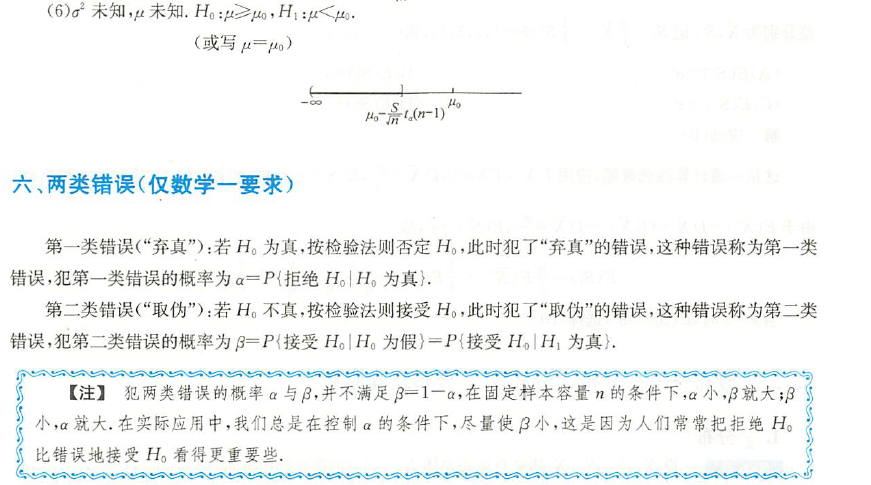 (6)σ² 未知,μ 未知. H₀:μ≥μ₀,H₁:μ<μ₀.
(或写 μ=μ₀)
-∞ μ₀-S/√n tα(n-1) μ₀
六、两类错误(仅数学一要求)
第一类错误(“弃真”):若 H₀ 为真,按检验法则否定 H₀,此时犯了“弃真”的错误,这种错误称为第一类
错误,犯第一类错误的概率为 α=P{拒绝 H₀|H₀ 为真}.
第二类错误(“取伪”):若 H₀ 不真,按检验法则接受 H₀,此时犯了“取伪”的错误,这种错误称为第二类
错误,犯第二类错误的概率为 β=P{接受 H₀|H₀ 为假}=P{接受 H₀|H₁ 为真}.
【注】 犯两类错误的概率 α 与 β,并不满足 β=1-α,在固定样本容量 n 的条件下,α 小,β 就大;β
小,α 就大. 在实际应用中,我们总是在控制 α 的条件下,尽量使 β 小,这是因为人们常常把拒绝 H₀
比错误地接受 H₀ 看得更重要些.